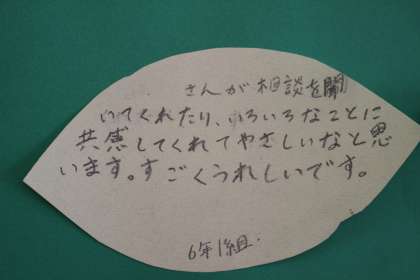 さんが相談を聞
いてくれたり、いろいろなことに
共感してくれてやさしいなと思
います。すごくうれしいです。
6年1組.